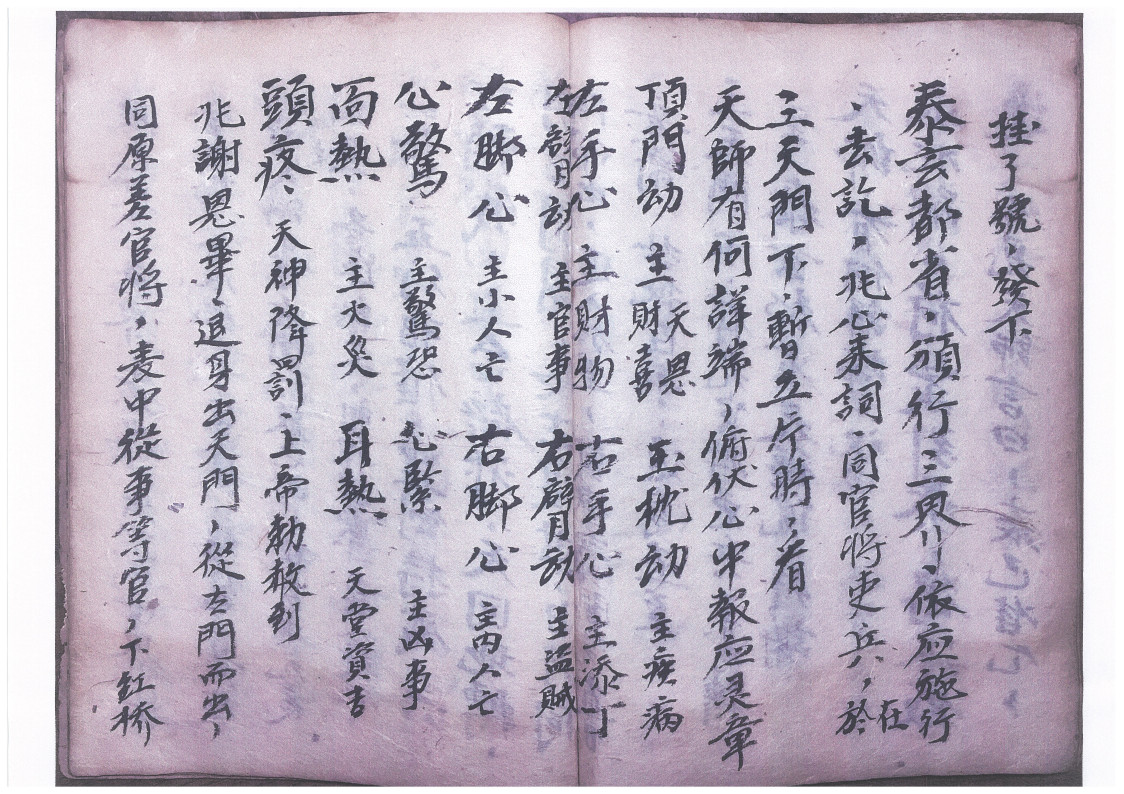 挂了號，發下
泰玄都省，頒行三界，依应施行
去訖，兆心奏詞，同官將吏兵，在於
三天門下，暫立片時，看
天師有何詳端，俯伏心中報应灵章
頂門动 主天恩財喜 玉枕动 主疾病
左手心 主財物，右手心 主添丁
左臂动 主官事 右臂动 主盜賊
左脚心 主小人亡 右脚心 主內人亡
心驚 主驚恐 心緊 主凶事
面熱 主火災 耳熱 天堂資吉
頭疼 天神降罰，上帝勅敕到
兆謝恩畢，退身出天門，從左門而出，
同原差官將，表中從事等官，下紅桥